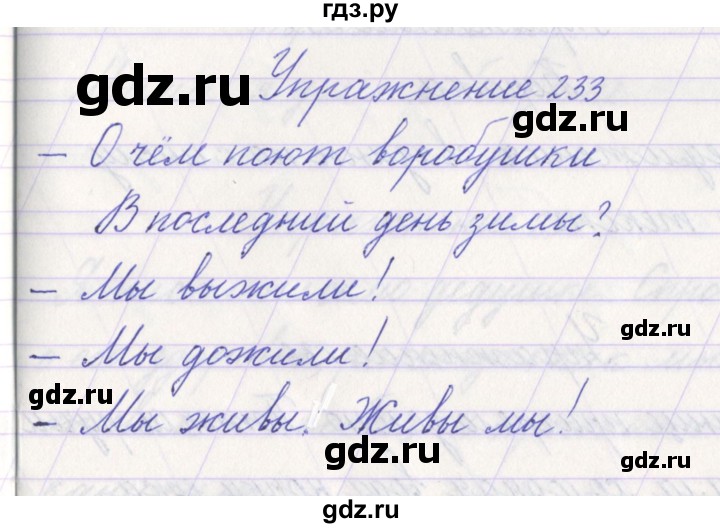 гдз.ру
Упражнение 233
gdz.ru
gdz.ru
– О чём поют воробушки
В последний день зимы?
– Мы выжили!
gdz.ru
– Мы дожили!
gdz.ru
– Мы живы. Живы мы!
gdz.ru
gdz.ru
gdz.ru